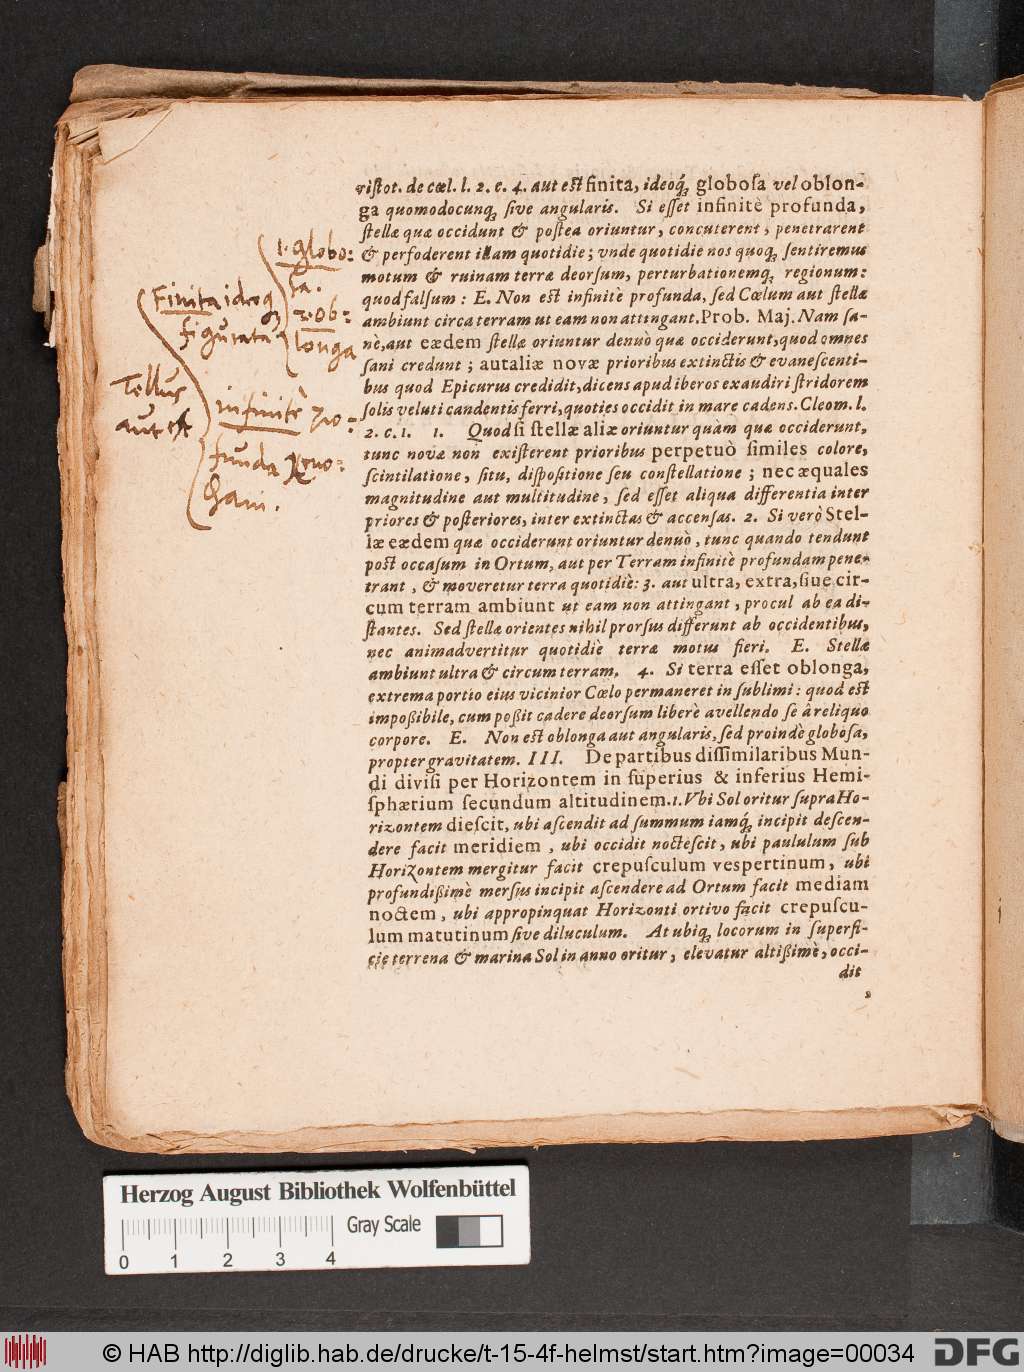 ristot. de cœl. l. 2. c. 4. aut est finita, ideoq́; globosa vel oblon-
ga quomodocunq; sive angularis. Si esset infinitè profunda,
stellæ quæ occidunt & postea oriuntur, concuterent, penetrarent
& perfoderent illam quotidie; vnde quotidie nos quoq; sentiremus
motum & ruinam terræ deorsum, perturbationemq; regionum:
quod falsum: E. Non est infinitè profunda, sed Cœlum aut stellæ
ambiunt circa terram ut eam non attingant. Prob. Maj. Nam sa-
nè, aut eædem stellæ oriuntur denuò quæ occiderunt, quod omnes
sani credunt; aut aliæ novæ prioribus extinctis & evanescenti-
bus quod Epicurus credidit, dicens apud iberos exaudiri stridorem
solis veluti candentis ferri, quoties occidit in mare cadens. Cleom. l.
2. c. 1. 1. Quod si stellæ aliæ oriuntur quàm quæ occiderunt,
tunc novæ non existerent prioribus perpetuò similes colore,
scintilatione, situ, dispositione seu constellatione; nec æquales
magnitudine aut multitudine, sed esset aliqua differentia inter
priores & posteriores, inter extinctas & accensas. 2. Si verò Stel-
læ eædem quæ occiderunt oriuntur denuò, tunc quando tendunt
post occasum in Ortum, aut per Terram infinitè profundam pene-
trant, & moveretur terra quotidiè: 3. aut ultra, extra, siue cir-
cum terram ambiunt ut eam non attingant, procul ab ea di-
stantes. Sed stellæ orientes nihil prorsus differunt ab occidentibus,
nec animadvertitur quotidiè terræ motus fieri. E. Stellæ
ambiunt ultra & circum terram. 4. Si terra esset oblonga,
extrema portio eius vicinior Cœlo permaneret in sublimi: quod est
impoßibile, cum poßit cadere deorsum liberè avellendo se à reliquo
corpore. E. Non est oblonga aut angularis, sed proindè globosa,
propter gravitatem. III. De partibus dissimilaribus Mun-
di divisi per Horizontem in superius & inferius Hemi-
sphærium secundum altitudinem. 1. Vbi Sol oritur supra Ho-
rizontem diescit, ubi ascendit ad summum iamq́; incipit descen-
dere facit meridiem, ubi occidit noctescit, ubi paululum sub
Horizontem mergitur facit crepusculum vespertinum, ubi
profundißimè mersus incipit ascendere ad Ortum facit mediam
noctem, ubi appropinquat Horizonti ortivo facit crepuscu-
lum matutinum sive diluculum. At ubiq; locorum in superfi-
cie terrena & marina Sol in anno oritur, elevatur altißimè, occi-
dit
Tellus
aut est
Finita ideoq;
figurata
1. globo:
sa.
2. ob:
longa
infinitè pro:
funda Xeno:
Herzog August Bibliothek Wolfenbüttel
Gray Scale
0 1 2 3 4
© HAB http://diglib.hab.de/drucke/t-15-4f-helmst/start.htm?image=00034
DFG